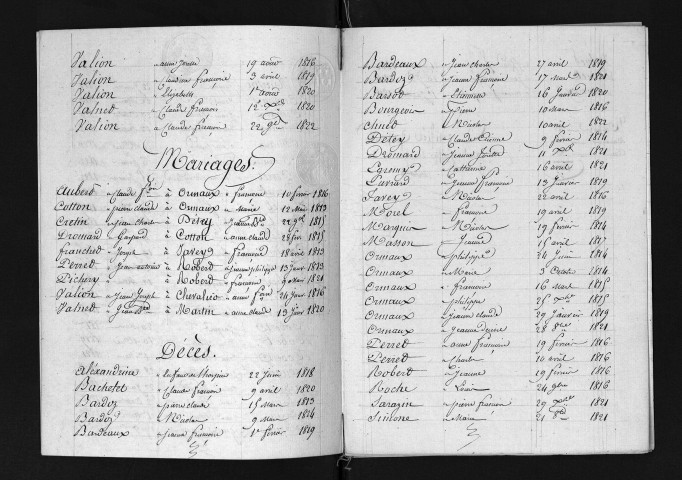 Valion anne 19 août 1816
Valion françoise 3 avril 1819
Valion Elizabeth 1er août 1820
Vatnet Claude françois 12 Xbre 1820
Valion Claude françois 22 9bre 1822
Mariages:
Aubert Claude fçois à Ormaux françoise 10 février 1816
Cotton pierre claude à Ormaux Marie 12 Mai 1813
Cretin jean charles à Détey 22 9bre 1815
Dromard Gaspard à Cotton anne claude 28 fév 1815
franchet Joseph à favey françoise 18 avril 1813
Perret jean antoine à Robert philippe 13 Janvr 1813
Pichery à Robert françoise 1821
Valion Jean Joseph à Chevalier anne fçoise 24 Janvr 1816
Vatnet à Martin anne claude 13 Janvr 1820
Décès.
alexandrine 22 Juin 1818
Bachetet Claude françois 9 avril 1820
Bardoz pierre claude 15 Mars 1813
Bardoz Nicolas 9 Mars 1814
Bardeaux jeanne françoise 1er février 1819
Bardeaux jean charles 27 avril 1819
Bardoz jeanne françoise 17 Mars 1821
Bardot Etiennette 16 Janvier 1820
Bourgeois Pierre 10 Mars 1816
Nicolas 10 avril 1822
Détey Claude Etienne 9 février 1814
Dromard jeanne 11 Xbre 1821
Catherine 16 avril 1821
jeanne françoise 13 Janvier 1819
favey Nicolas 22 avril 1816
Morel françoise 19 avril 1819
Marquis Nicolas 19 février 1814
Masson Jeanne 15 avril 1817
Ormaux philippe 24 Juin 1814
Ormaux Marie 3 Octobre 1814
Ormaux françoise 16 Mars 1815
Ormaux philippe 25 Xbre 1815
Ormaux jeanne claude 29 Janvier 1819
Ormaux jeanne 28 8bre 1821
Perret anne françoise 19 février 1816
Perret Charles 10 avril 1816
Robert Jeanne 19 février 1816
Roche Louis 24 9bre 1816
Sarazin pierre françois 29 1821
Simone Marie 21 8bre 1821